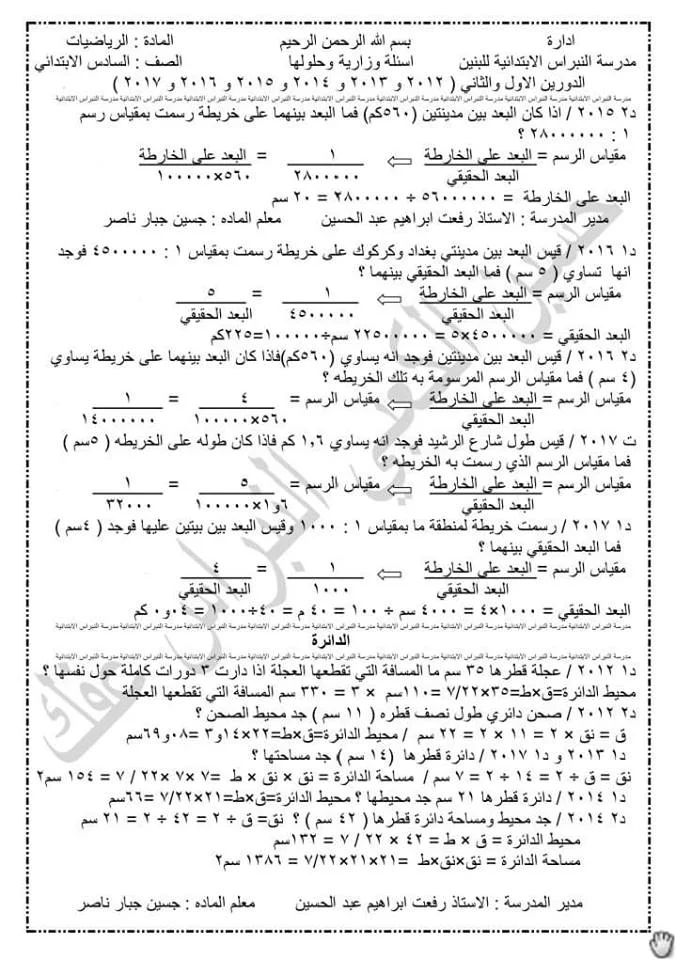 ادارة بسم الله الرحمن الرحيم المادة : الرياضيات
مدرسة النبراس الابتدائية للبنين اسئلة وزارية وحلولها الصف : السادس الابتدائي
الدورين الاول والثاني ( ٢٠١٢ و ٢٠١٣ و ٢٠١٤ و ٢٠١٥ و ٢٠١٦ و ٢٠١٧ )
مدرسة النبراس الابتدائية مدرسة النبراس الابتدائية مدرسة النبراس الابتدائية مدرسة النبراس الابتدائية مدرسة النبراس الابتدائية مدرسة النبراس الابتدائية
د٢ ٢٠١٥ / اذا كان البعد بين مدينتين (٥٦٠كم) فما البعد بينهما على خريطة رسمت بمقياس رسم
١ : ٢٨٠٠٠٠٠٠ ؟
مقياس الرسم = البعد على الخارطة ⇦ ١ = البعد على الخارطة
البعد الحقيقي ٢٨٠٠٠٠٠ ٥٦٠×١٠٠٠٠٠
البعد على الخارطة = ٥٦٠٠٠٠٠٠ ÷ ٢٨٠٠٠٠٠ = ٢٠ سم
مدير المدرسة : الاستاذ رفعت ابراهيم عبد الحسين معلم الماده : جسين جبار ناصر
د١ ٢٠١٦ / قيس البعد بين مدينتي بغداد وكركوك على خريطة رسمت بمقياس ١ : ٤٥٠٠٠٠٠ فوجد
انها تساوي ( ٥ سم ) فما البعد الحقيقي بينهما ؟
مقياس الرسم = البعد على الخارطة ⇦ ١ = ٥
البعد الحقيقي ٤٥٠٠٠٠٠ البعد الحقيقي
البعد الحقيقي = ٤٥٠٠٠٠٠×٥ = ٢٢٥٠٠٠٠٠ سم÷١٠٠٠٠٠=٢٢٥كم
د٢ ٢٠١٦ / قيس البعد بين مدينتين فوجد انه يساوي (٥٦٠كم)فاذا كان البعد بينهما على خريطة يساوي
(٤ سم ) فما مقياس الرسم المرسومة به تلك الخريطه ؟
مقياس الرسم = البعد على الخارطة ⇦ مقياس الرسم = ٤ = ١
البعد الحقيقي ٥٦٠×١٠٠٠٠٠ ١٤٠٠٠٠٠٠
ت ٢٠١٧ / قيس طول شارع الرشيد فوجد انه يساوي ١,٦ كم فاذا كان طوله على الخريطه ( ٥سم )
فما مقياس الرسم الذي رسمت به الخريطه ؟
مقياس الرسم = البعد على الخارطة ⇦ مقياس الرسم = ٥ = ١
البعد الحقيقي ٦و١×١٠٠٠٠٠ ٣٢٠٠٠
د١ ٢٠١٧ / رسمت خريطة لمنطقة ما بمقياس ١ : ١٠٠٠ وقيس البعد بين بيتين عليها فوجد ( ٤سم )
فما البعد الحقيقي بينهما ؟
مقياس الرسم = البعد على الخارطة ⇦ ١ = ٤
البعد الحقيقي ١٠٠٠ البعد الحقيقي
البعد الحقيقي = ١٠٠٠×٤ = ٤٠٠٠ سم ÷ ١٠٠ = ٤٠ م = ٤٠÷١٠٠٠ = ٠٤و٠ كم
مدرسة النبراس الابتدائية مدرسة النبراس الابتدائية مدرسة النبراس الابتدائية مدرسة النبراس الابتدائية مدرسة النبراس الابتدائية مدرسة النبراس الابتدائية
الدائرة
مدرسة النبراس الابتدائية مدرسة النبراس الابتدائية مدرسة النبراس الابتدائية مدرسة النبراس الابتدائية مدرسة النبراس الابتدائية مدرسة النبراس الابتدائية
د١ ٢٠١٢ / عجلة قطرها ٣٥ سم ما المسافة التي تقطعها العجلة اذا دارت ٣ دورات كاملة حول نفسها ؟
محيط الدائرة=ق×ط=٣٥×٧/٢٢=١١٠سم × ٣ = ٣٣٠ سم المسافة التي تقطعها العجلة
د٢ ٢٠١٢ / صحن دائري طول نصف قطره ( ١١ سم ) جد محيط الصحن ؟
ق = نق × ٢ = ١١ × ٢ = ٢٢ سم / محيط الدائرة=ق×ط=٢٢×١٤و٣ =٠٨و٦٩سم
د١ ٢٠١٣ و د١ ٢٠١٧ / دائرة قطرها (١٤ سم ) جد مساحتها ؟
نق = ق ÷ ٢ = ١٤ ÷ ٢ = ٧ سم / مساحة الدائرة = نق × نق × ط =٧ ×٧ ×٢٢ / ٧ = ١٥٤ سم٢
د١ ٢٠١٤ / دائرة قطرها ٢١ سم جد محيطها ؟ محيط الدائرة=ق×ط=٢١×٧/٢٢ =٦٦سم
د٢ ٢٠١٤ / جد محيط ومساحة دائرة قطرها ( ٤٢ سم ) ؟ نق= ق ÷ ٢ = ٤٢ ÷ ٢ = ٢١ سم
محيط الدائرة = ق × ط = ٤٢ × ٢٢ / ٧ = ١٣٢سم
مساحة الدائرة = نق×نق×ط =٢١×٢١×٧/٢٢ = ١٣٨٦ سم٢
مدير المدرسة : الاستاذ رفعت ابراهيم عبد الحسين معلم الماده : جسين جبار ناصر